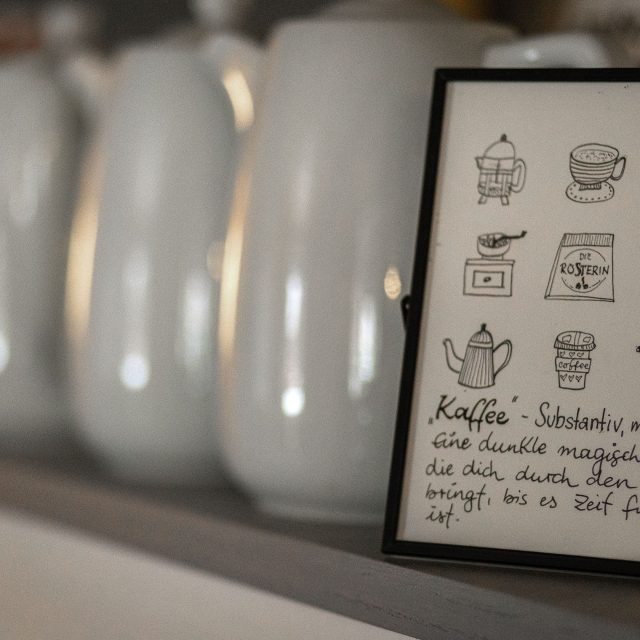 DIE
RÖSTEREI
coffee
„Kaffee“ - Substantiv, m
Eine dunkle magisch
die dich durch den
bringt, bis es Zeit fü
ist.